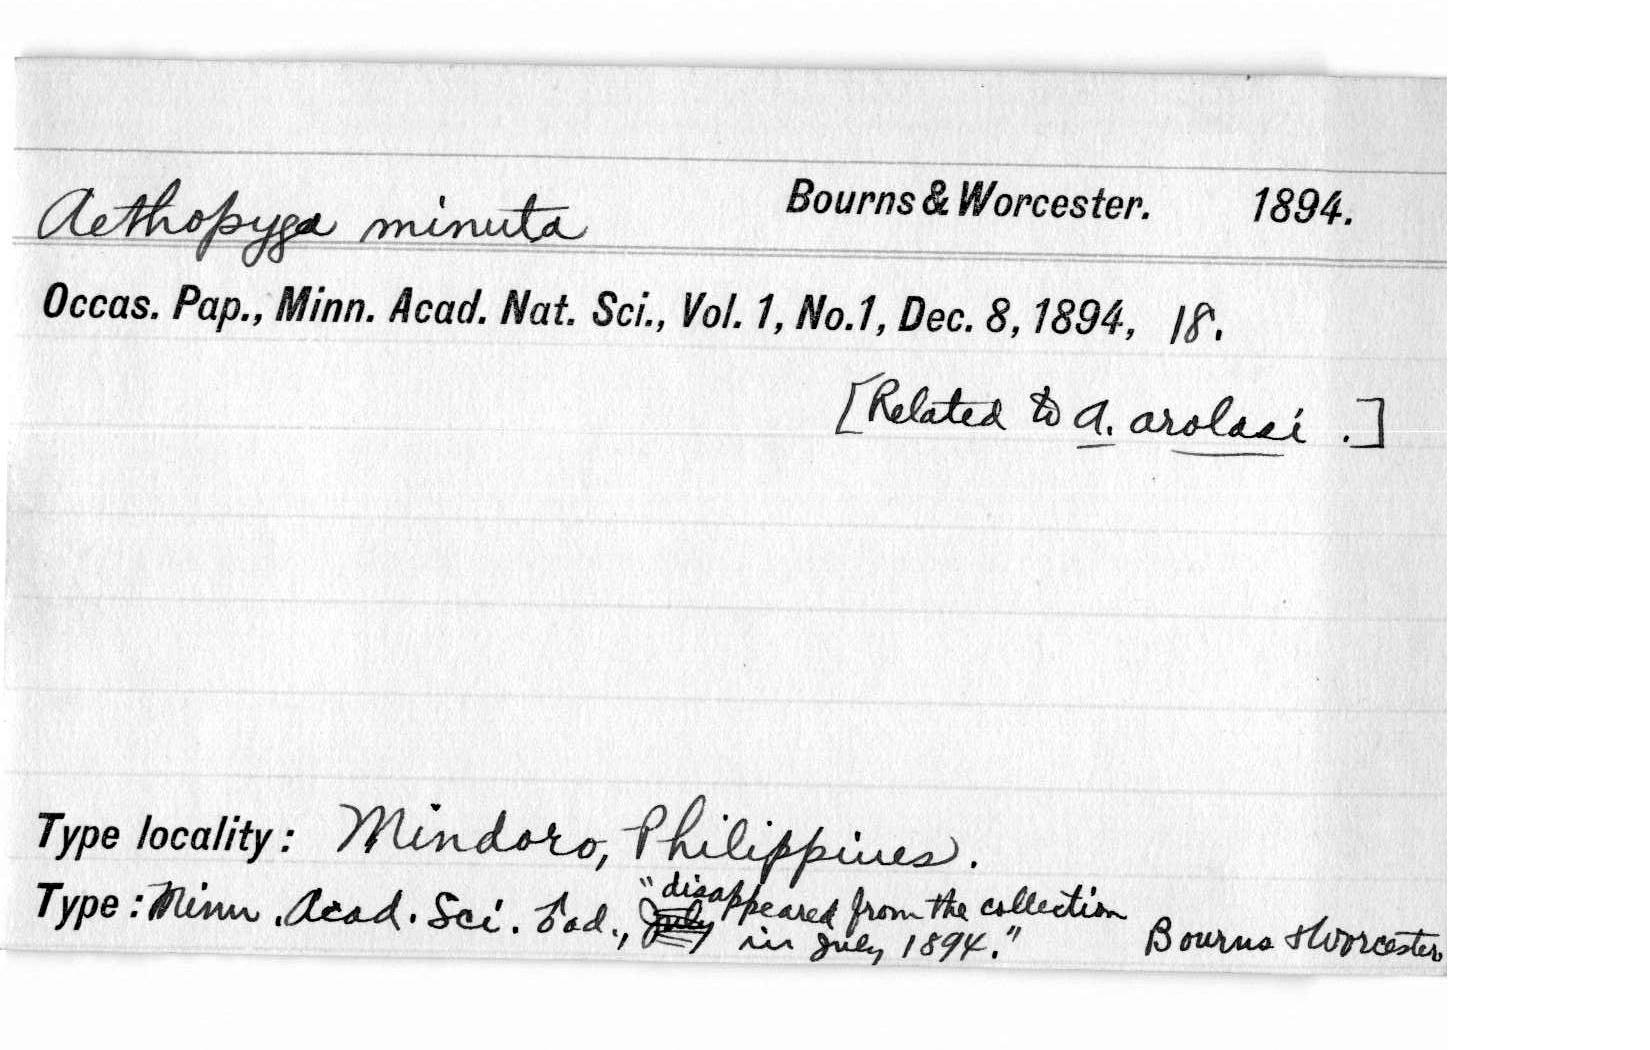 Aethopyga minuta Bourns & Worcester. 1894.
Occas. Pap., Minn. Acad. Nat. Sci., Vol. 1, No.1, Dec. 8, 1894, 18.
[Related to A. arolasi .]
Type locality: Mindoro, Philippines.
Type: Minn. Acad. Sci. ♂ ad., "disappeared from the collection
in July 1894." Bourns & Worcester